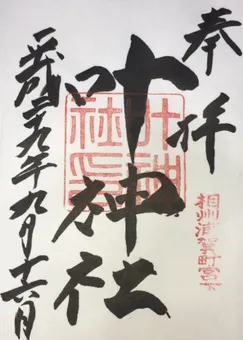 奉拝
叶神社
叶神社印
相州浦賀町宮下
平成二九年九月十六日